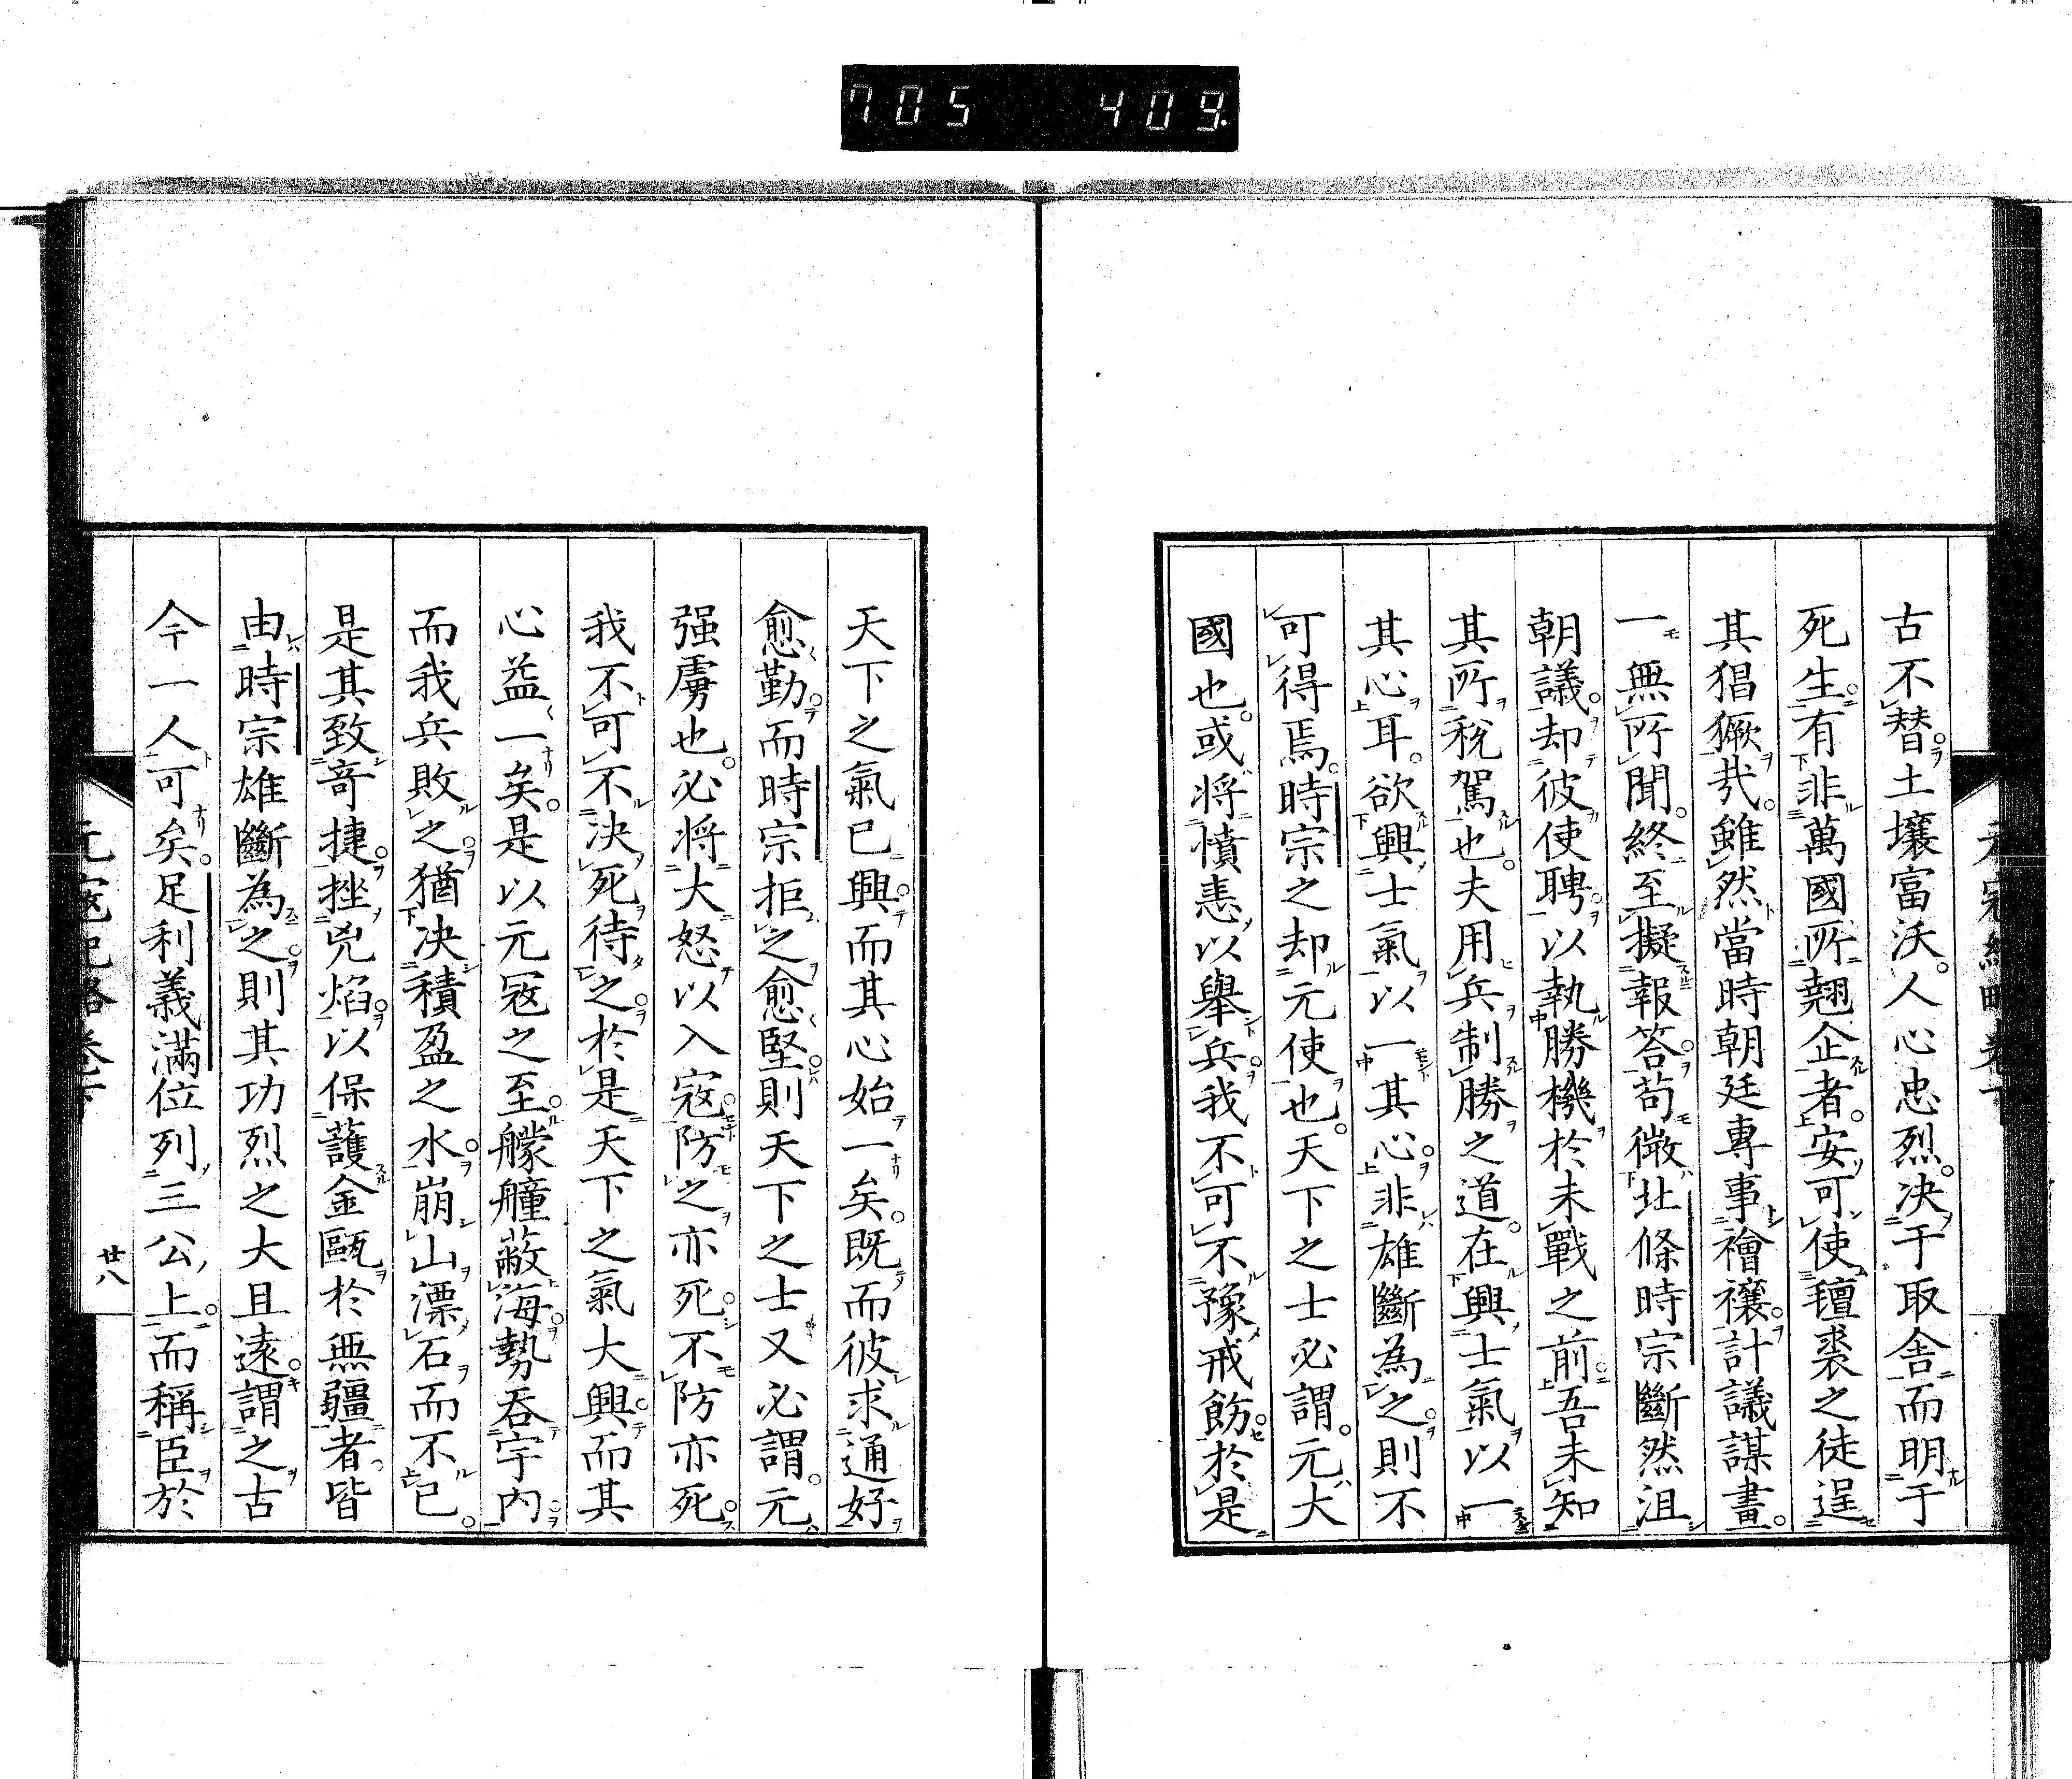 705 409
古不替土壤富沃。人心忠烈。決于取舍而明于
死生有非萬國所翹企者。安可使氊裘之徒逞
其猖獗哉。雖然當時朝廷專事禬禳計議謀畫。
一無所聞。終至擬報答苟微北條時宗斷然沮
朝議却彼使聘。以執勝機於未戰之前吾未知
其所稅駕也。夫用兵制勝之道。在興士氣以一
其心耳。欲興士氣以一其心非雄斷為之則不
可得焉。時宗之却元使也。天下之士必謂。元大
國也。或將憤恚以舉兵我不可不豫戒飭於是
天下之氣已興而其心始一矣。既而彼求通好
愈勤而時宗拒之愈堅則天下之士又必謂。元
强虜也。必将大怒以入寇防之亦死不防亦死
我不可不決死待之於是天下之氣大興而其
心益一矣。是以元寇之至艨艟蔽海勢吞宇内
而我兵敗之猶決積盈之水崩山漂石而不已。
是其致奇捷挫兇焰以保護金甌於無疆者皆
由時宗雄斷為之則其功烈之大且遠謂之古
今一人可矣。足利義滿位列三公上而稱臣於
元寇紀略卷下
廿八